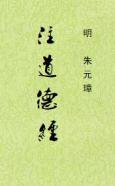 明 朱元璋
注道德經